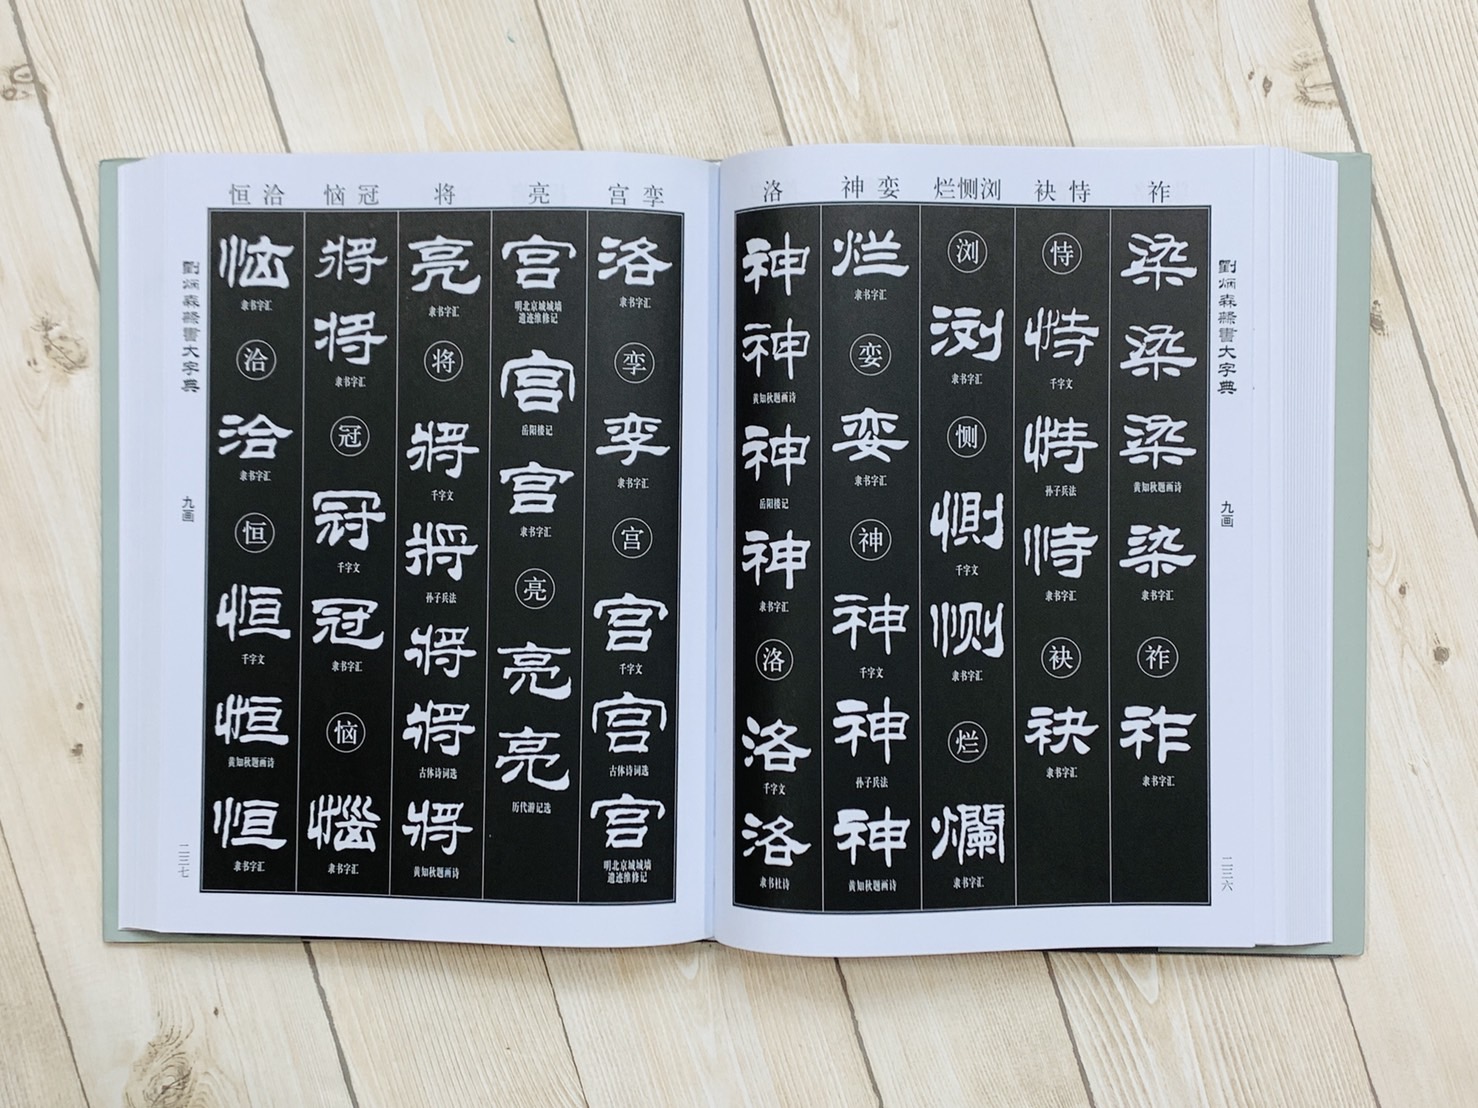 劉炳森隸書大字典
九画
二三六
祚
恃 袂
浏恻烂
娈 神
洛
染
染
染
黄知秋题画诗
染
隶书字汇
祚
祚
隶书字汇
恃
恃
千字文
恃
孙子兵法
恃
隶书字汇
袂
袂
隶书字汇
浏
浏
隶书字汇
恻
惻
千字文
恻
隶书字汇
烂
爛
隶书字汇
烂
隶书字汇
娈
娈
隶书字汇
神
神
千字文
神
孙子兵法
神
黄知秋题画诗
神
神
黄知秋题画诗
神
岳阳楼记
神
隶书字汇
洛
洛
千字文
洛
隶书杜诗
孪 宫
亮
将
冠 恼
洽 恒
洛
隶书字汇
孪
孪
隶书字汇
宫
宫
千字文
宫
古体诗词选
宫
明北京城城墙
遗迹维修记
宫
明北京城城墙
遗迹维修记
宫
岳阳楼记
宫
隶书字汇
亮
亮
亮
历代游记选
亮
隶书字汇
将
將
千字文
將
孙子兵法
將
將
古体诗词选
將
黄知秋题画诗
將
将
隶书字汇
冠
冠
千字文
冠
隶书字汇
恼
惱
隶书字汇
恼
隶书字汇
洽
洽
隶书字汇
恒
恒
千字文
恒
黄知秋题画诗
恒
隶书字汇
劉炳森隸書大字典
九画
二三七